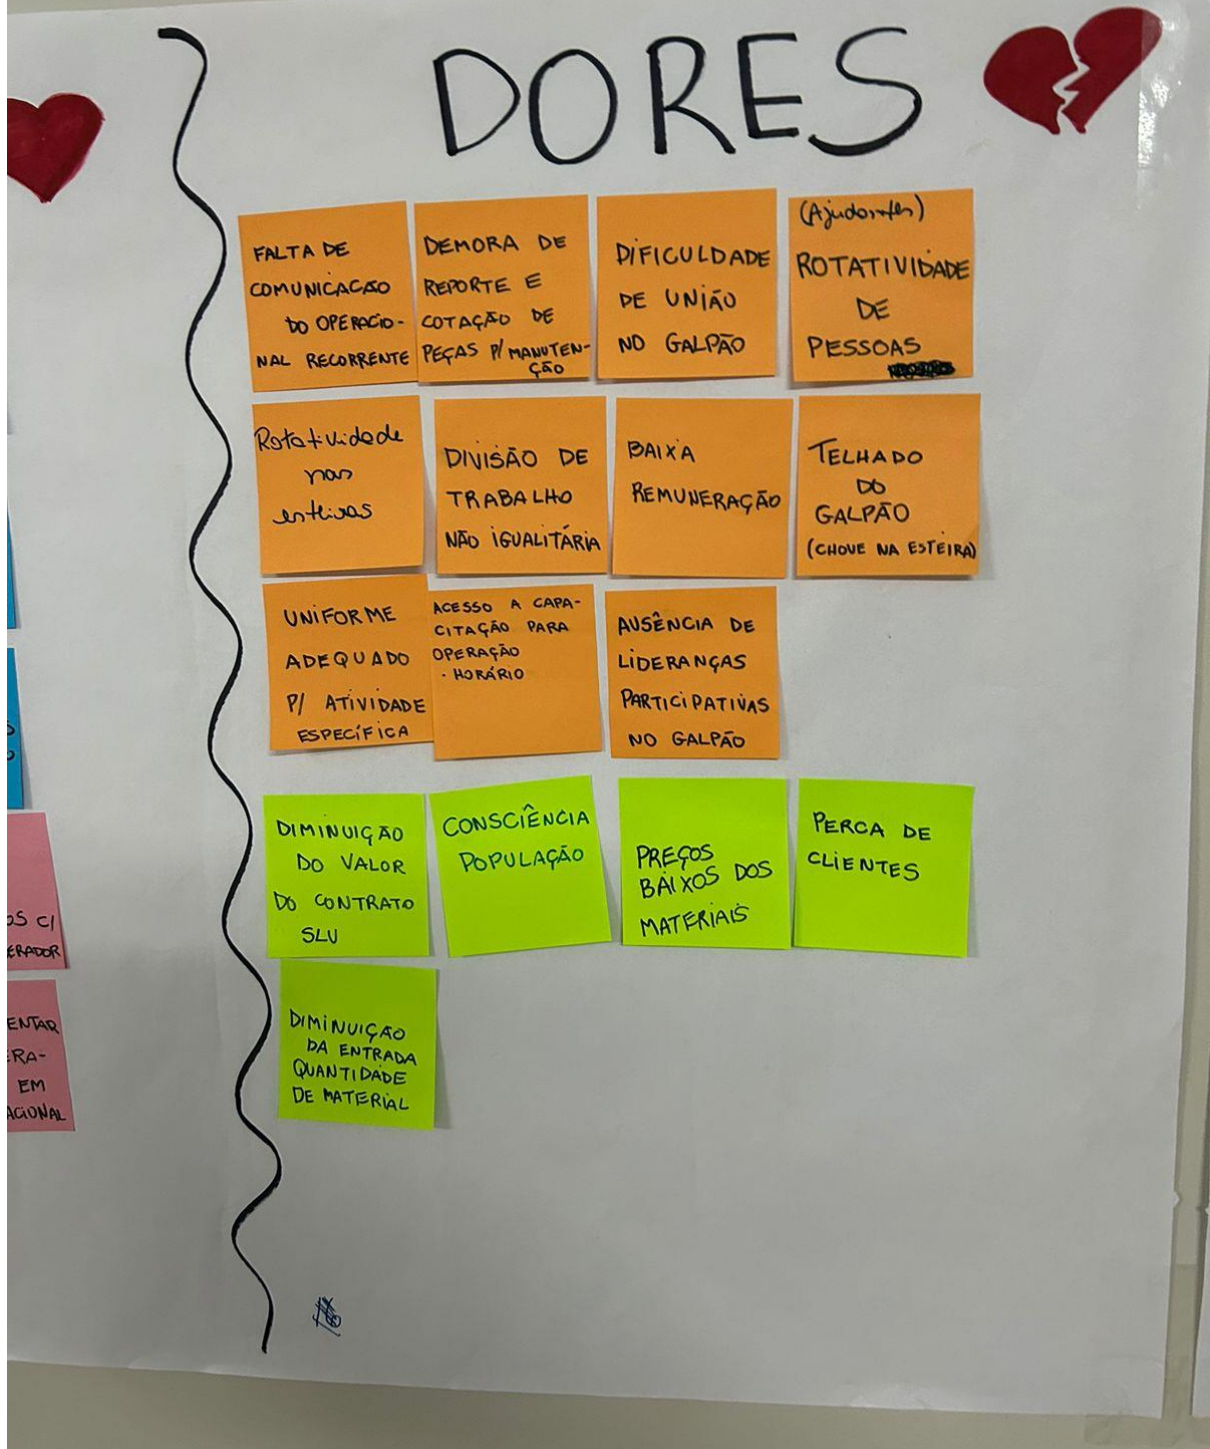 DORES
FALTA DE
COMUNICACÃO
DO OPERACIO-
NAL RECORRENTE
DEMORA DE
REPORTE E
COTAÇÃO DE
PEÇAS P/ MANUTEN-
ÇÃO
DIFICULDADE
DE UNIÃO
NO GALPÃO
(Ajudantes)
ROTATIVIDADE
DE
PESSOAS
Rotatividade
nas
esteiras
DIVISÃO DE
TRABALHO
NÃO IGUALITÁRIA
BAIXA
REMUNERAÇÃO
TELHADO
DO
GALPÃO
(CHOVE NA ESTEIRA)
UNIFORME
ADEQUADO
P/ ATIVIDADE
ESPECÍFICA
ACESSO A CAPA-
CITAÇÃO PARA
OPERAÇÃO
- HORÁRIO
AUSÊNCIA DE
LIDERANÇAS
PARTICIPATIVAS
NO GALPÃO
DIMINUIÇÃO
DO VALOR
DO CONTRATO
SLU
CONSCIÊNCIA
POPULAÇÃO
PREÇOS
BAIXOS DOS
MATERIAIS
PERCA DE
CLIENTES
DIMINUIÇÃO
DA ENTRADA
QUANTIDADE
DE MATERIAL
OS C/
ERADOR
ENTAR
ERA-
EM
ACIONAL